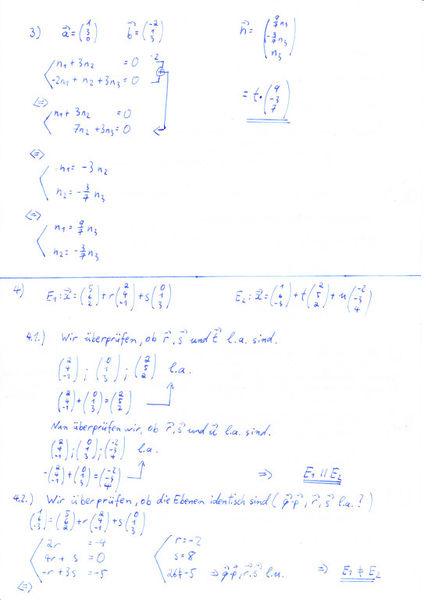 3) a⃗ = (1 3 0) b⃗ = (-2 1 3) n⃗ = (9/7 n₃ -3/7 n₃ n₃)
n₁ + 3n₂ = 0 | ·2
-2n₁ + n₂ + 3n₃ = 0
= t · (9 -3 7)
⇔
n₁ + 3n₂ = 0
7n₂ + 3n₃ = 0
⇔
n₁ = -3n₂
n₂ = -3/7 n₃
⇔
n₁ = 9/7 n₃
n₂ = -3/7 n₃
4) E₁: x⃗ = (5 6 2) + r (2 4 -1) + s (0 1 3) E₂: x⃗ = (1 6 -3) + t (2 5 2) + u (-2 -3 4)
4.1.) Wir überprüfen, ob r⃗, s⃗ und t⃗ l.a. sind.
(2 4 -1) ; (0 1 3) ; (2 5 2) l.a.
(2 4 -1) + (0 1 3) = (2 5 2)
Nun überprüfen wir, ob r⃗, s⃗ und u⃗ l.a. sind.
(2 4 -1) ; (0 1 3) ; (-2 -3 4) l.a.
-(2 4 -1) + (0 1 3) = (-2 -3 4) ⇒ E₁ || E₂
4.2.) Wir überprüfen, ob die Ebenen identisch sind (q⃗-p⃗, r⃗, s⃗ l.a.?)
(1 6 -3) = (5 6 2) + r (2 4 -1) + s (0 1 3)
2r = -4 r = -2
4r + s = 0 s = 8
-r + 3s = -5 26 ≠ -5 ⇒ q⃗-p⃗, r⃗, s⃗ l.u. ⇒ E₁ ≢ E₂
⇔